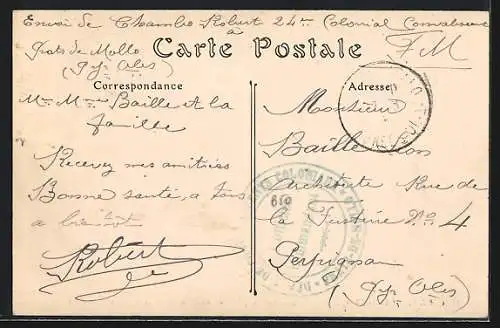 Envoi de Chambo Robert 24me Colonial
à
Prats de Mollo
(Py. Oles)
F M
Carte Postale
Correspondance
Adresse
Mr Mme Baille et la
famille
Recevez mes amitiés
Bonne santé, a tous
a bientôt
Robert
Monsieur
Baille Léon
Architecte Rue de
la Fusterie No 4
Perpignan
(Py. Oles)